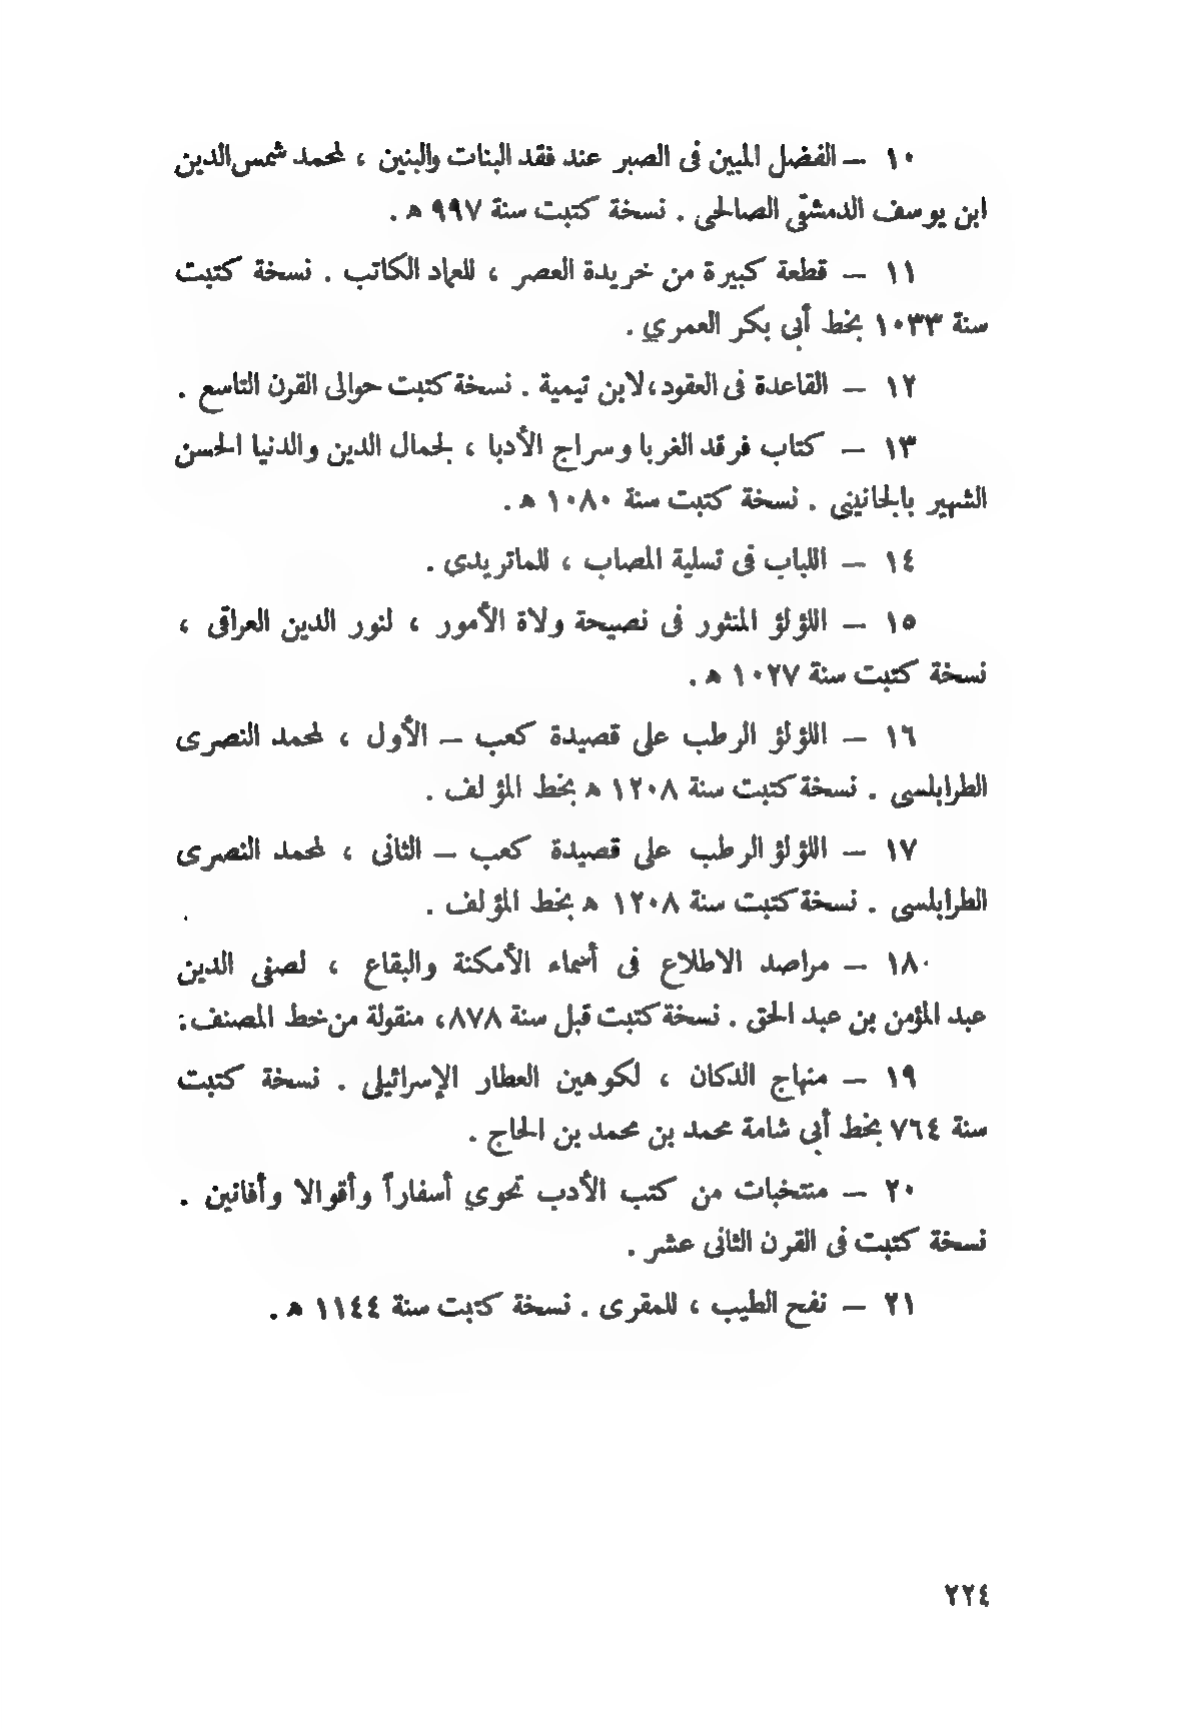 ١٠ — الفضل المبين فى الصبر عند فقد البنات والبنين ، لمحمد شمس الدين
ابن يوسف الدمشقى الصالحى . نسخة كتبت سنة ٩٩٧ ه .
١١ — قطعة كبيرة من خريدة العصر ، للعماد الكاتب . نسخة كتبت
سنة ١٠٣٣ بخط أبي بكر العمري .
١٢ — القاعدة فى العقود ، لابن تيمية . نسخة كتبت حوالى القرن التاسع .
١٣ — كتاب فرقد الغربا وسراج الأدبا ، لجمال الدين والدنيا الحسن
الشهير بالجانينى . نسخة كتبت سنة ١٠٨٠ ه .
١٤ — اللباب فى تسلية المصاب ، للماتريدى .
١٥ — اللؤلؤ المنثور فى نصيحة ولاة الأمور ، لنور الدين العراقى ،
نسخة كتبت سنة ١٠٢٧ ه .
١٦ — اللؤلؤ الرطب على قصيدة كعب — الأول ، لمحمد النصرى
الطرابلسى . نسخة كتبت سنة ١٢٠٨ ه بخط المؤلف .
١٧ — اللؤلؤ الرطب على قصيدة كعب — الثانى ، لمحمد النصرى
الطرابلسى . نسخة كتبت سنة ١٢٠٨ ه بخط المؤلف .
١٨ — مراصد الاطلاع فى أسماء الأمكنة والبقاع ، لصفى الدين
عبد المؤمن بن عبد الحق . نسخة كتبت قبل سنة ٨٧٨، منقولة من خط المصنف :
١٩ — منهاج الدكان ، لكوهين العطار الإسرائيلى . نسخة كتبت
سنة ٧٦٤ بخط أبي شامة محمد بن محمد بن الحاج .
٢٠ — منتخبات من كتب الأدب تحوي أسفاراً وأقوالا وأفانين .
نسخة كتبت فى القرن الثانى عشر .
٢١ — نفح الطيب ، للمقرى . نسخة كتبت سنة ١١٤٤ ه .
٢٢٤